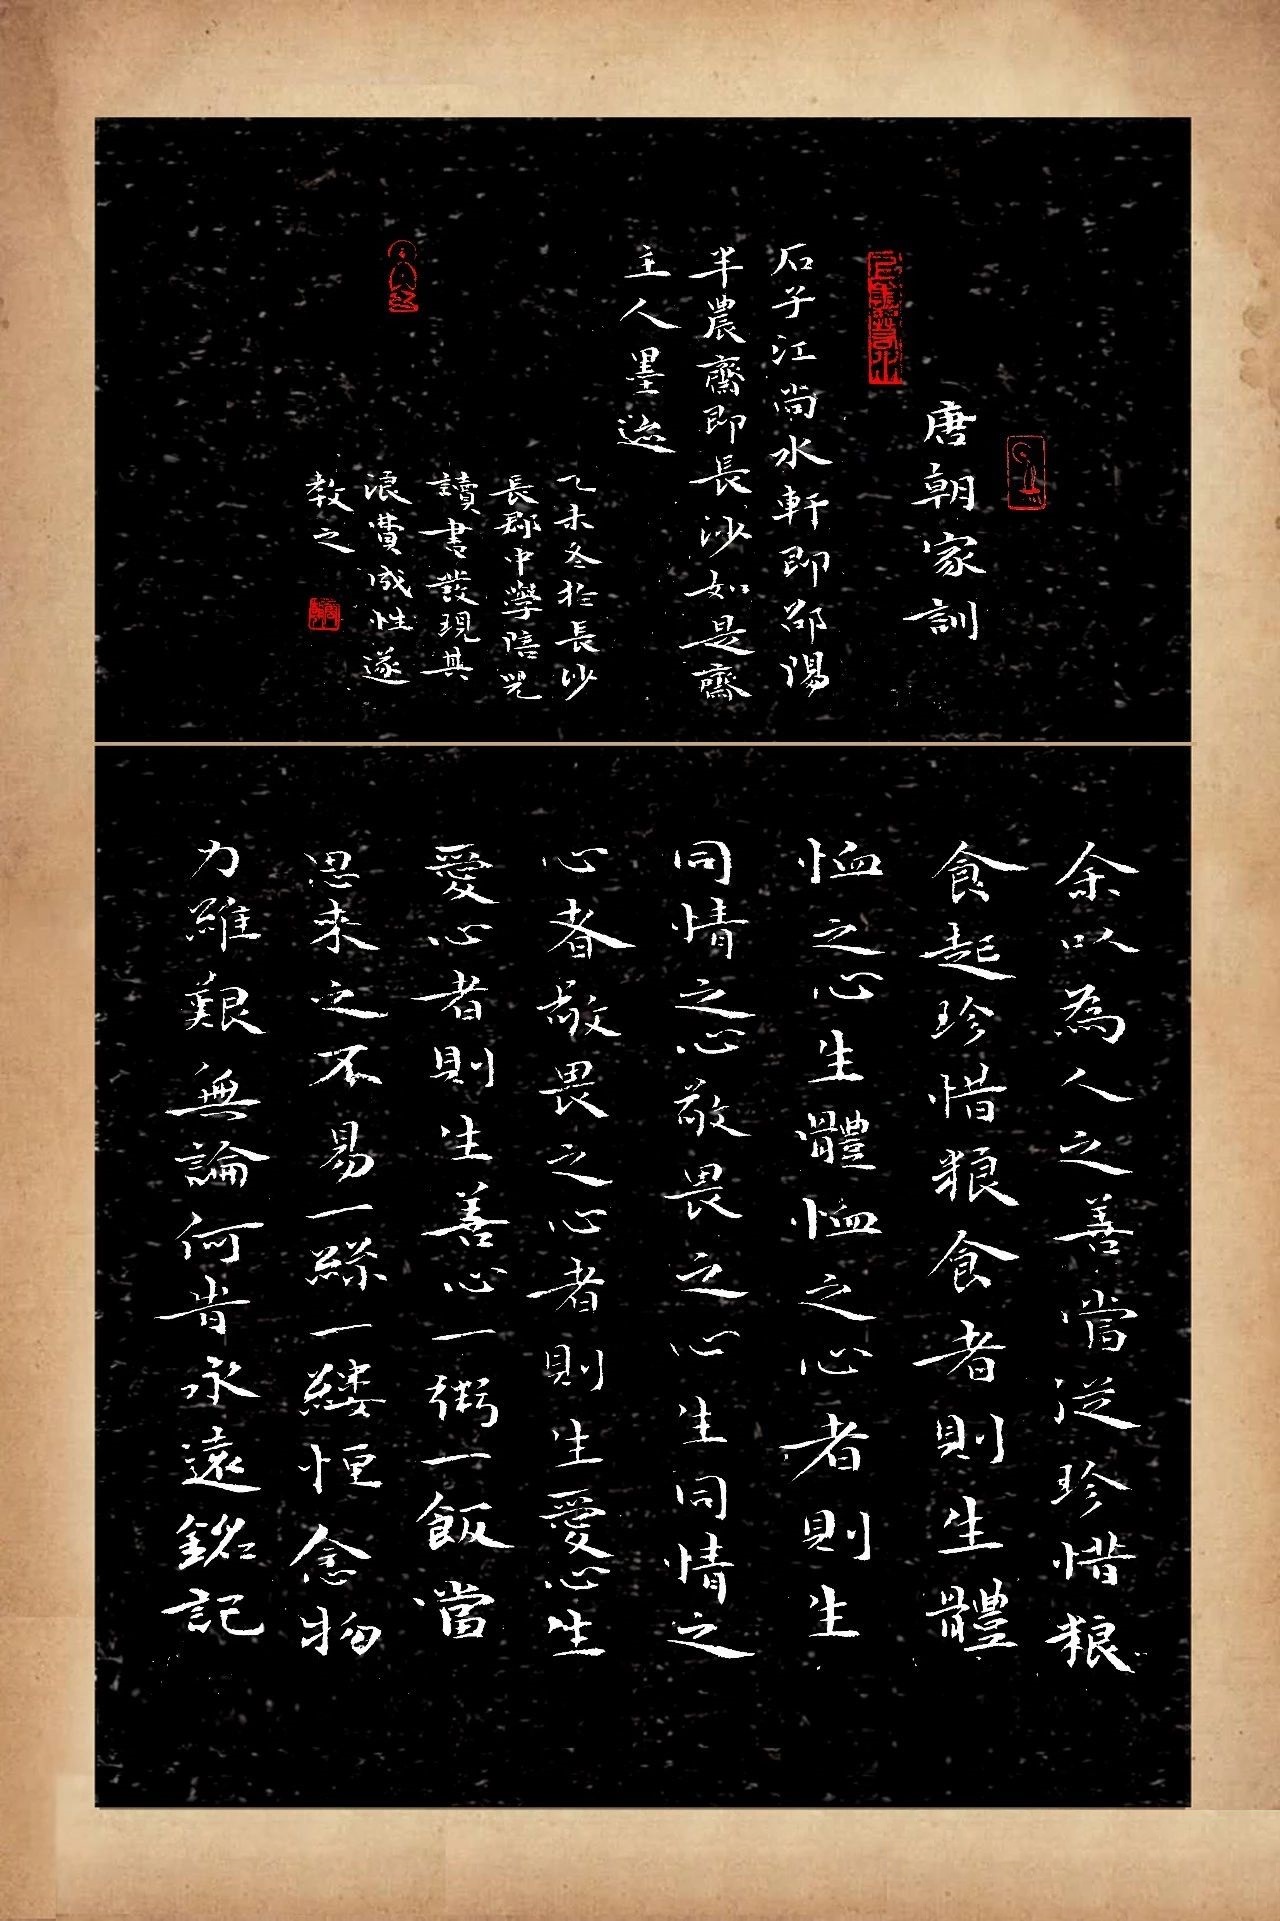 唐朝家訓
石子江尚水軒即邵陽
半農齋即長沙如是齋
主人墨迹
乙未冬於長沙
長郡中學陪兒
讀書發現其
浪費成性遂
教之
余以為人之善當從珍惜粮
食起珍惜粮食者則生體
恤之心生體恤之心者則生
同情之心敬畏之心生同情之
心者敬畏之心者則生愛心生
愛心者則生善心一粥一飯當
思來之不易一絲一縷恒念物
力維艱無論何時永遠銘記